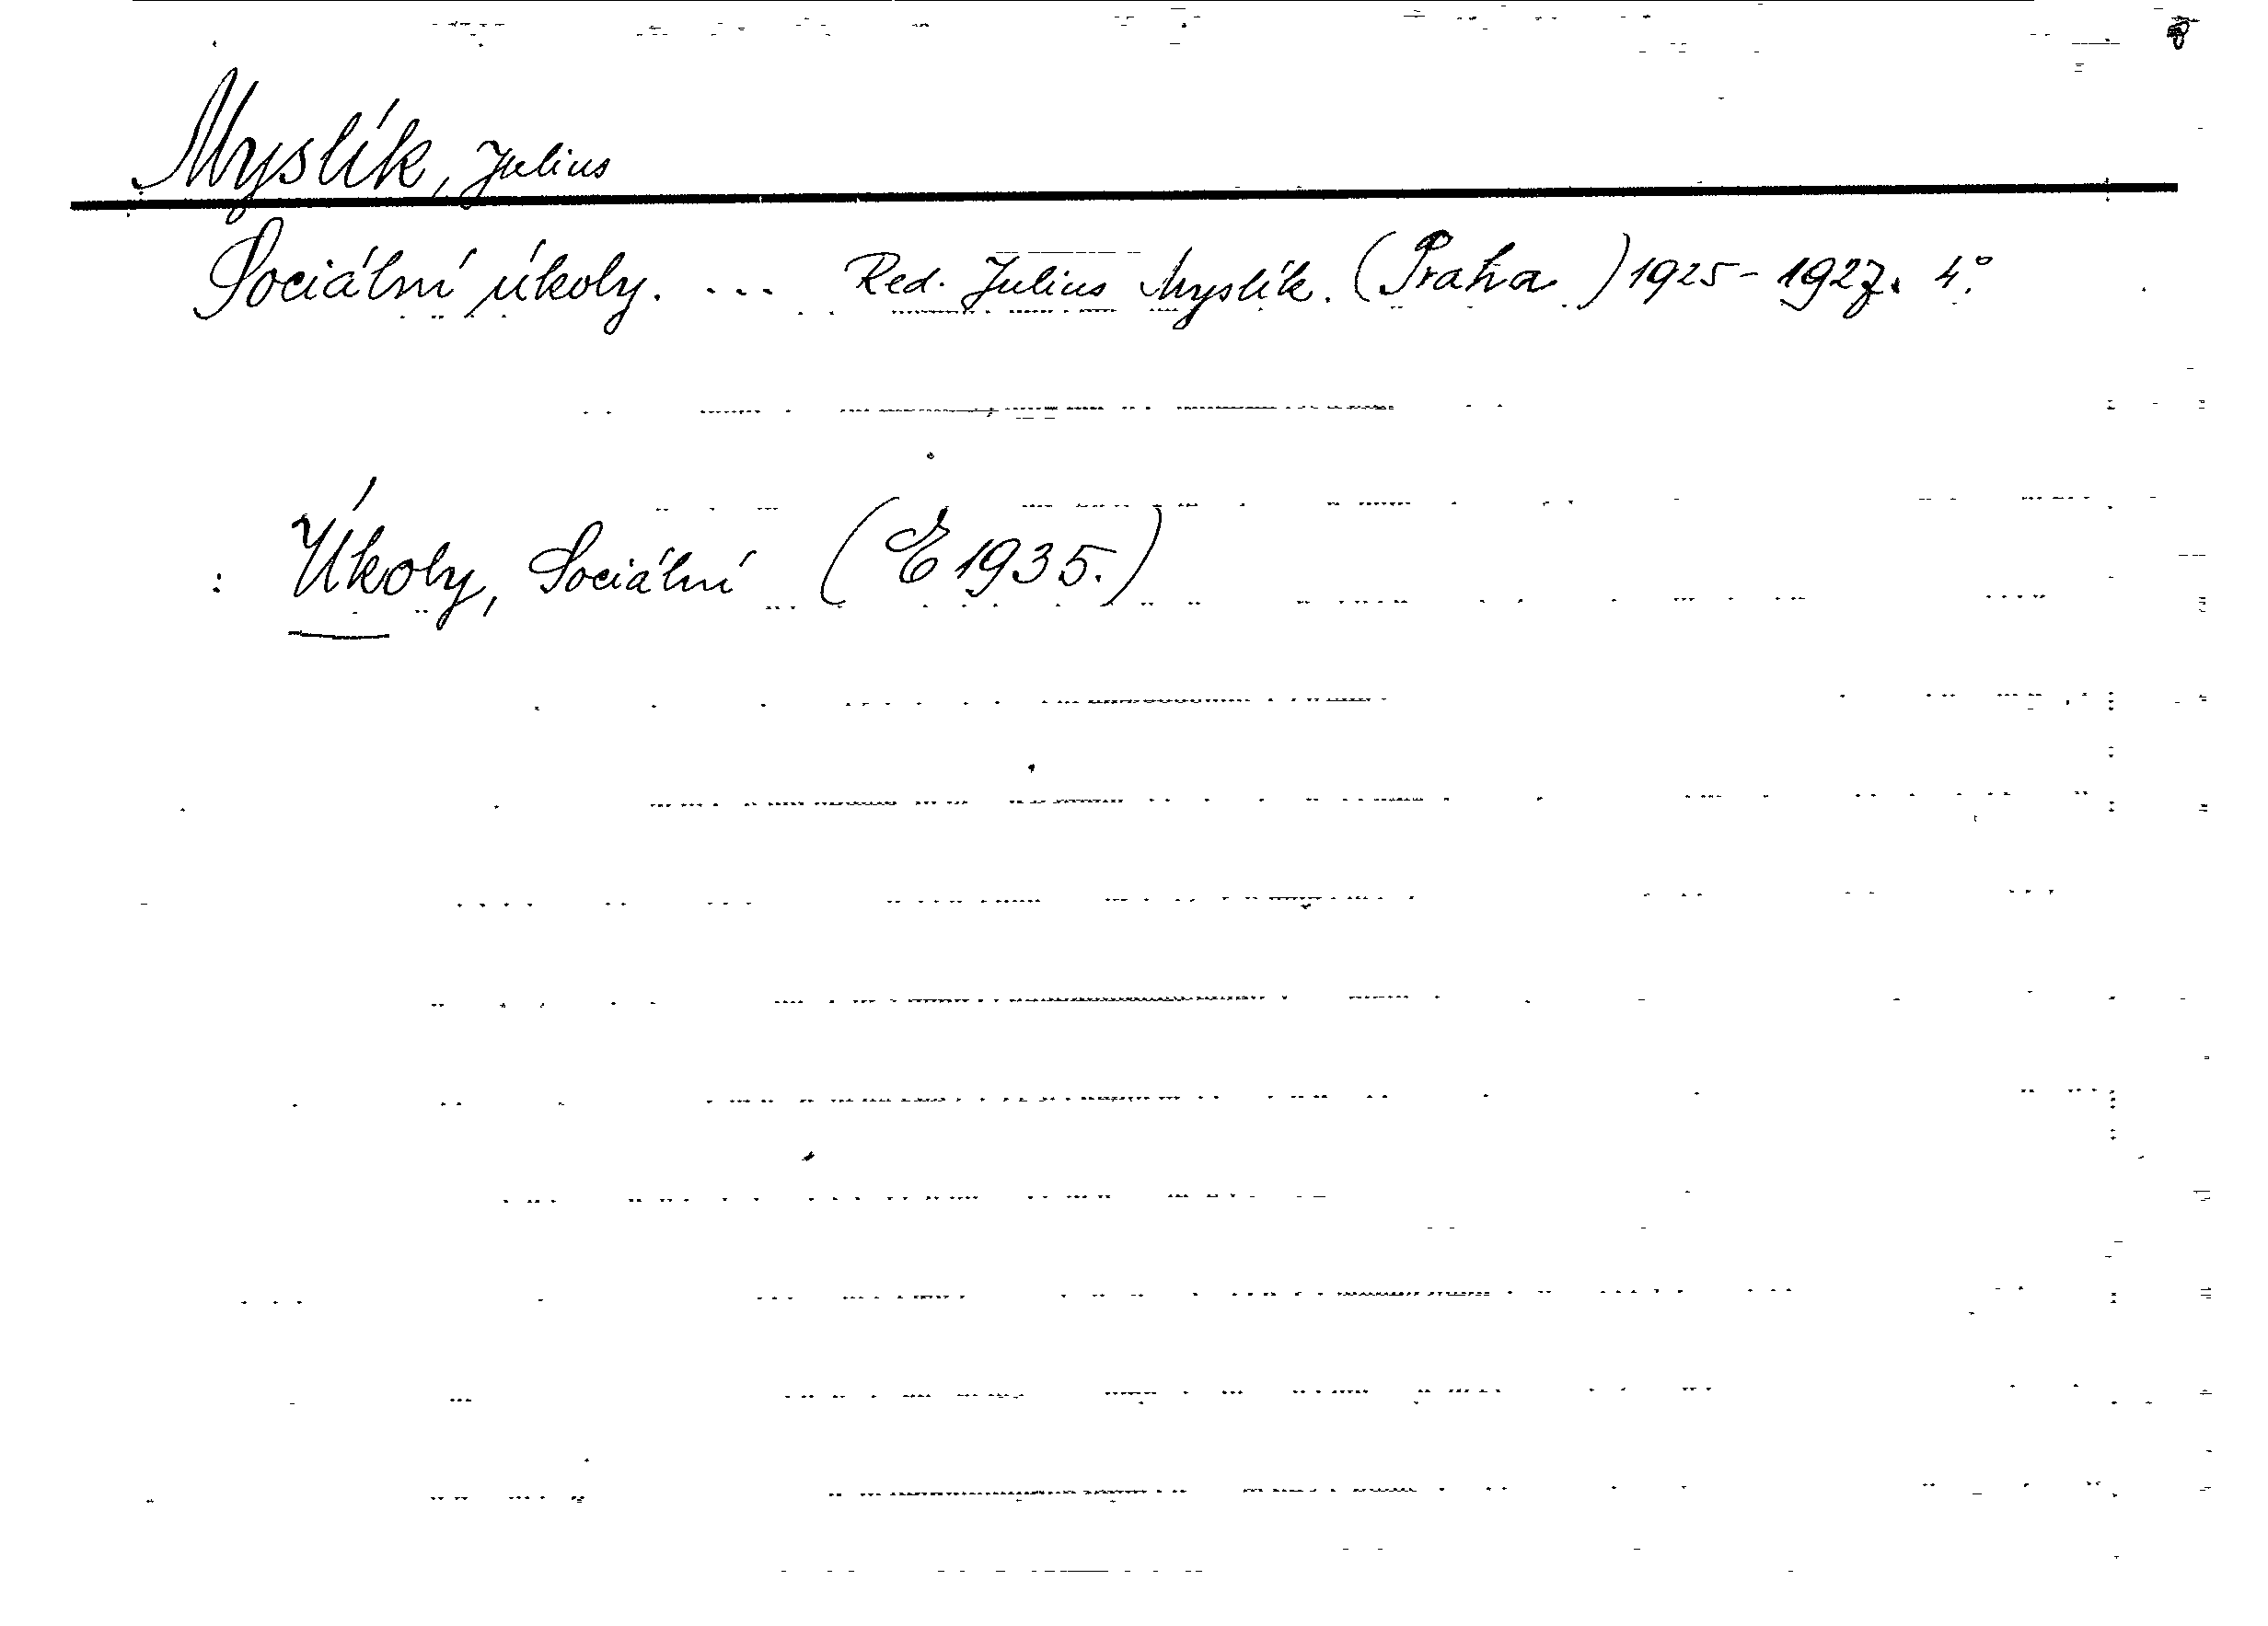 Myslík, Julius
Sociální úkoly. ... Red. Julius Myslík. (Praha.) 1925-1927. 4°.
: Úkoly, Sociální (E 1935.)